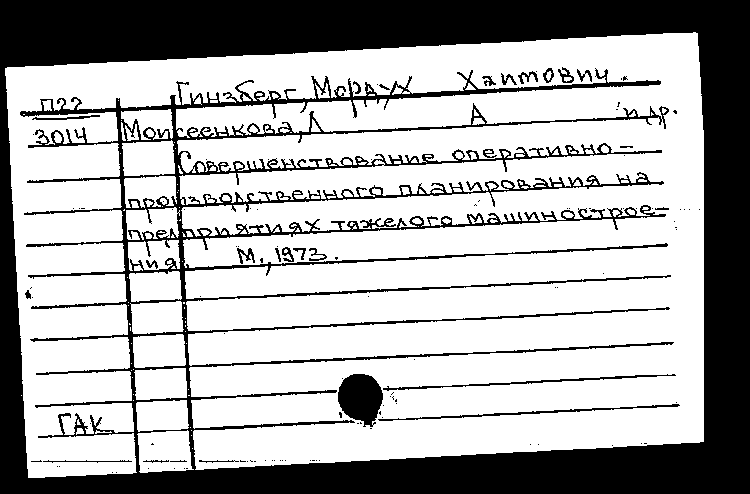 П22 Гинзберг, Мордух Хаимович.
3014 Моисеенкова, Л А и др.
Совершенствование оперативно-
производственного планирования на
предприятиях тяжелого машинострое-
ния. М., 1973.
ГАК